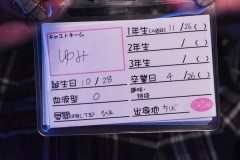 キャストネーム
ゆみ
1年生(入店日) 11/26( )
2年生 / ( )
3年生 / ( )
誕生日 10/28
卒業日 4/26( )
血液型 O
趣味・特技
出身地 ちば